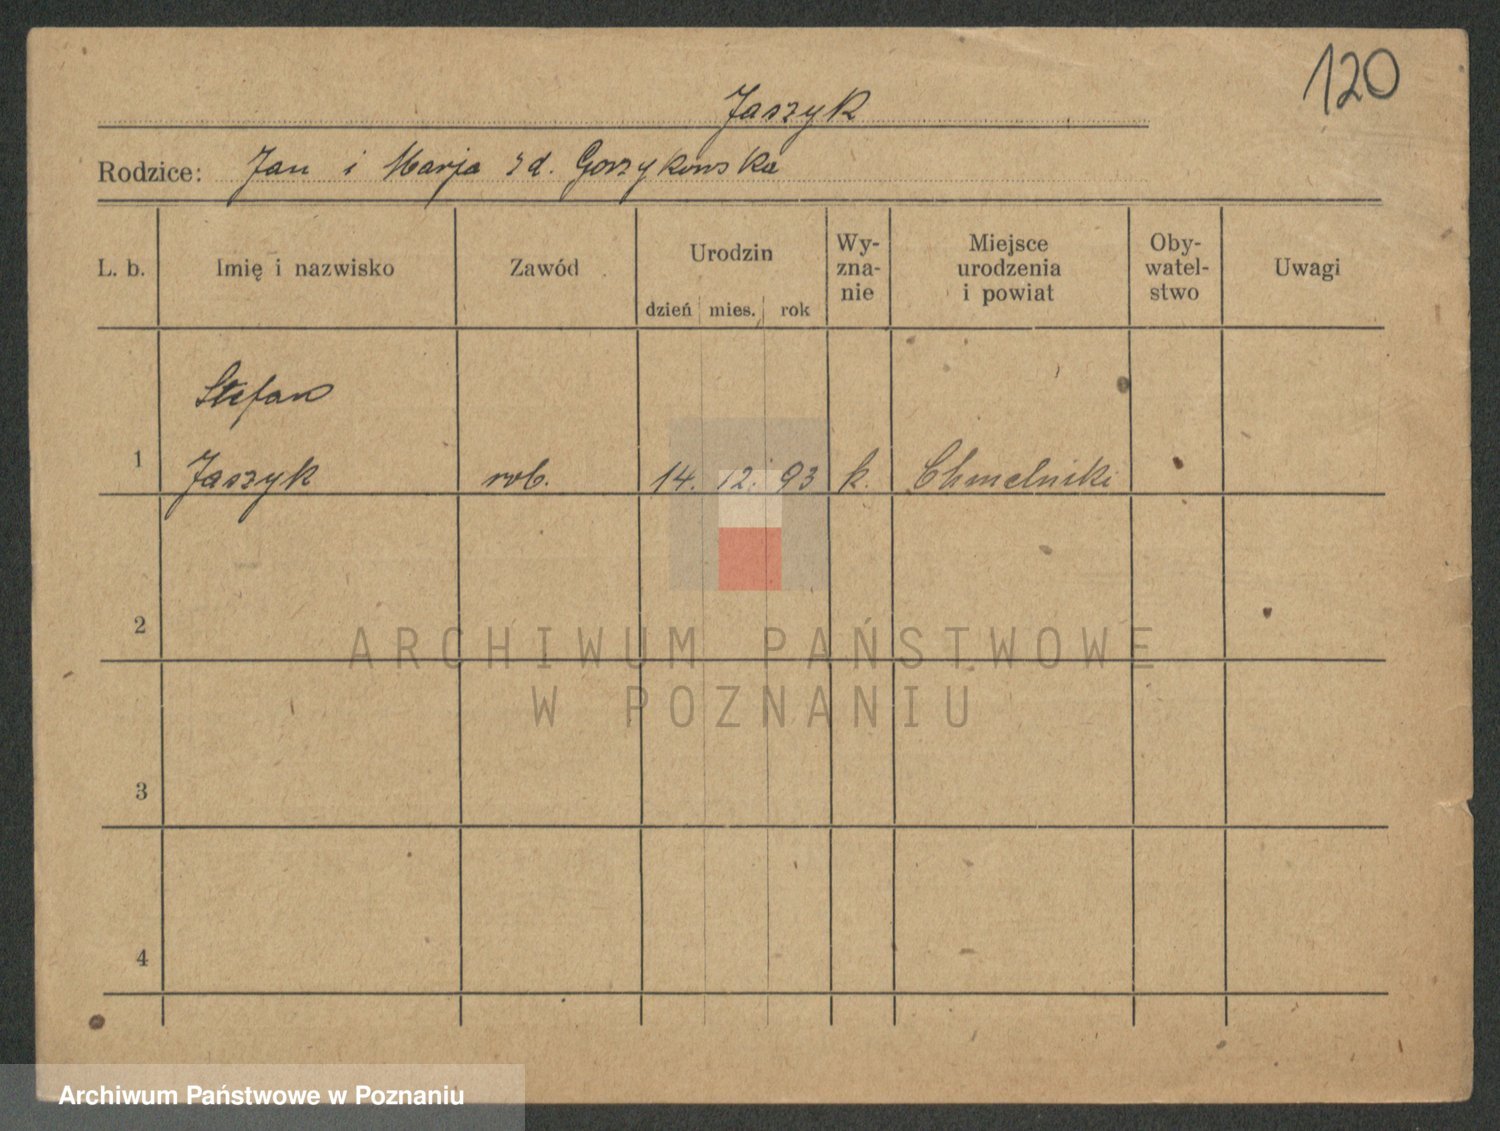 120
Jaszyk
Rodzice: Jan i Marja zd. Gorzykowska
L. b. Imię i nazwisko Zawód Urodzin dzień mies. rok Wy-zna-nie Miejsce urodzenia i powiat Oby-watel-stwo Uwagi
Stefan
1 Jaszyk rob. 14. 12. 93 k. Chmelniki
2
ARCHIWUM PAŃSTWOWE
W POZNANIU
3
4
Archiwum Państwowe w Poznaniu